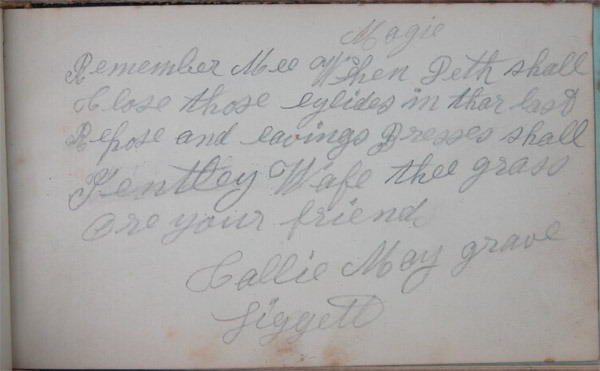 Magie
Remember Mee When Deth shall
Close those eylides in thar last
Repose and eavings Bresses shall
Gentley Wafe thee grass
Ore your friend
Callie May grave
Liggett